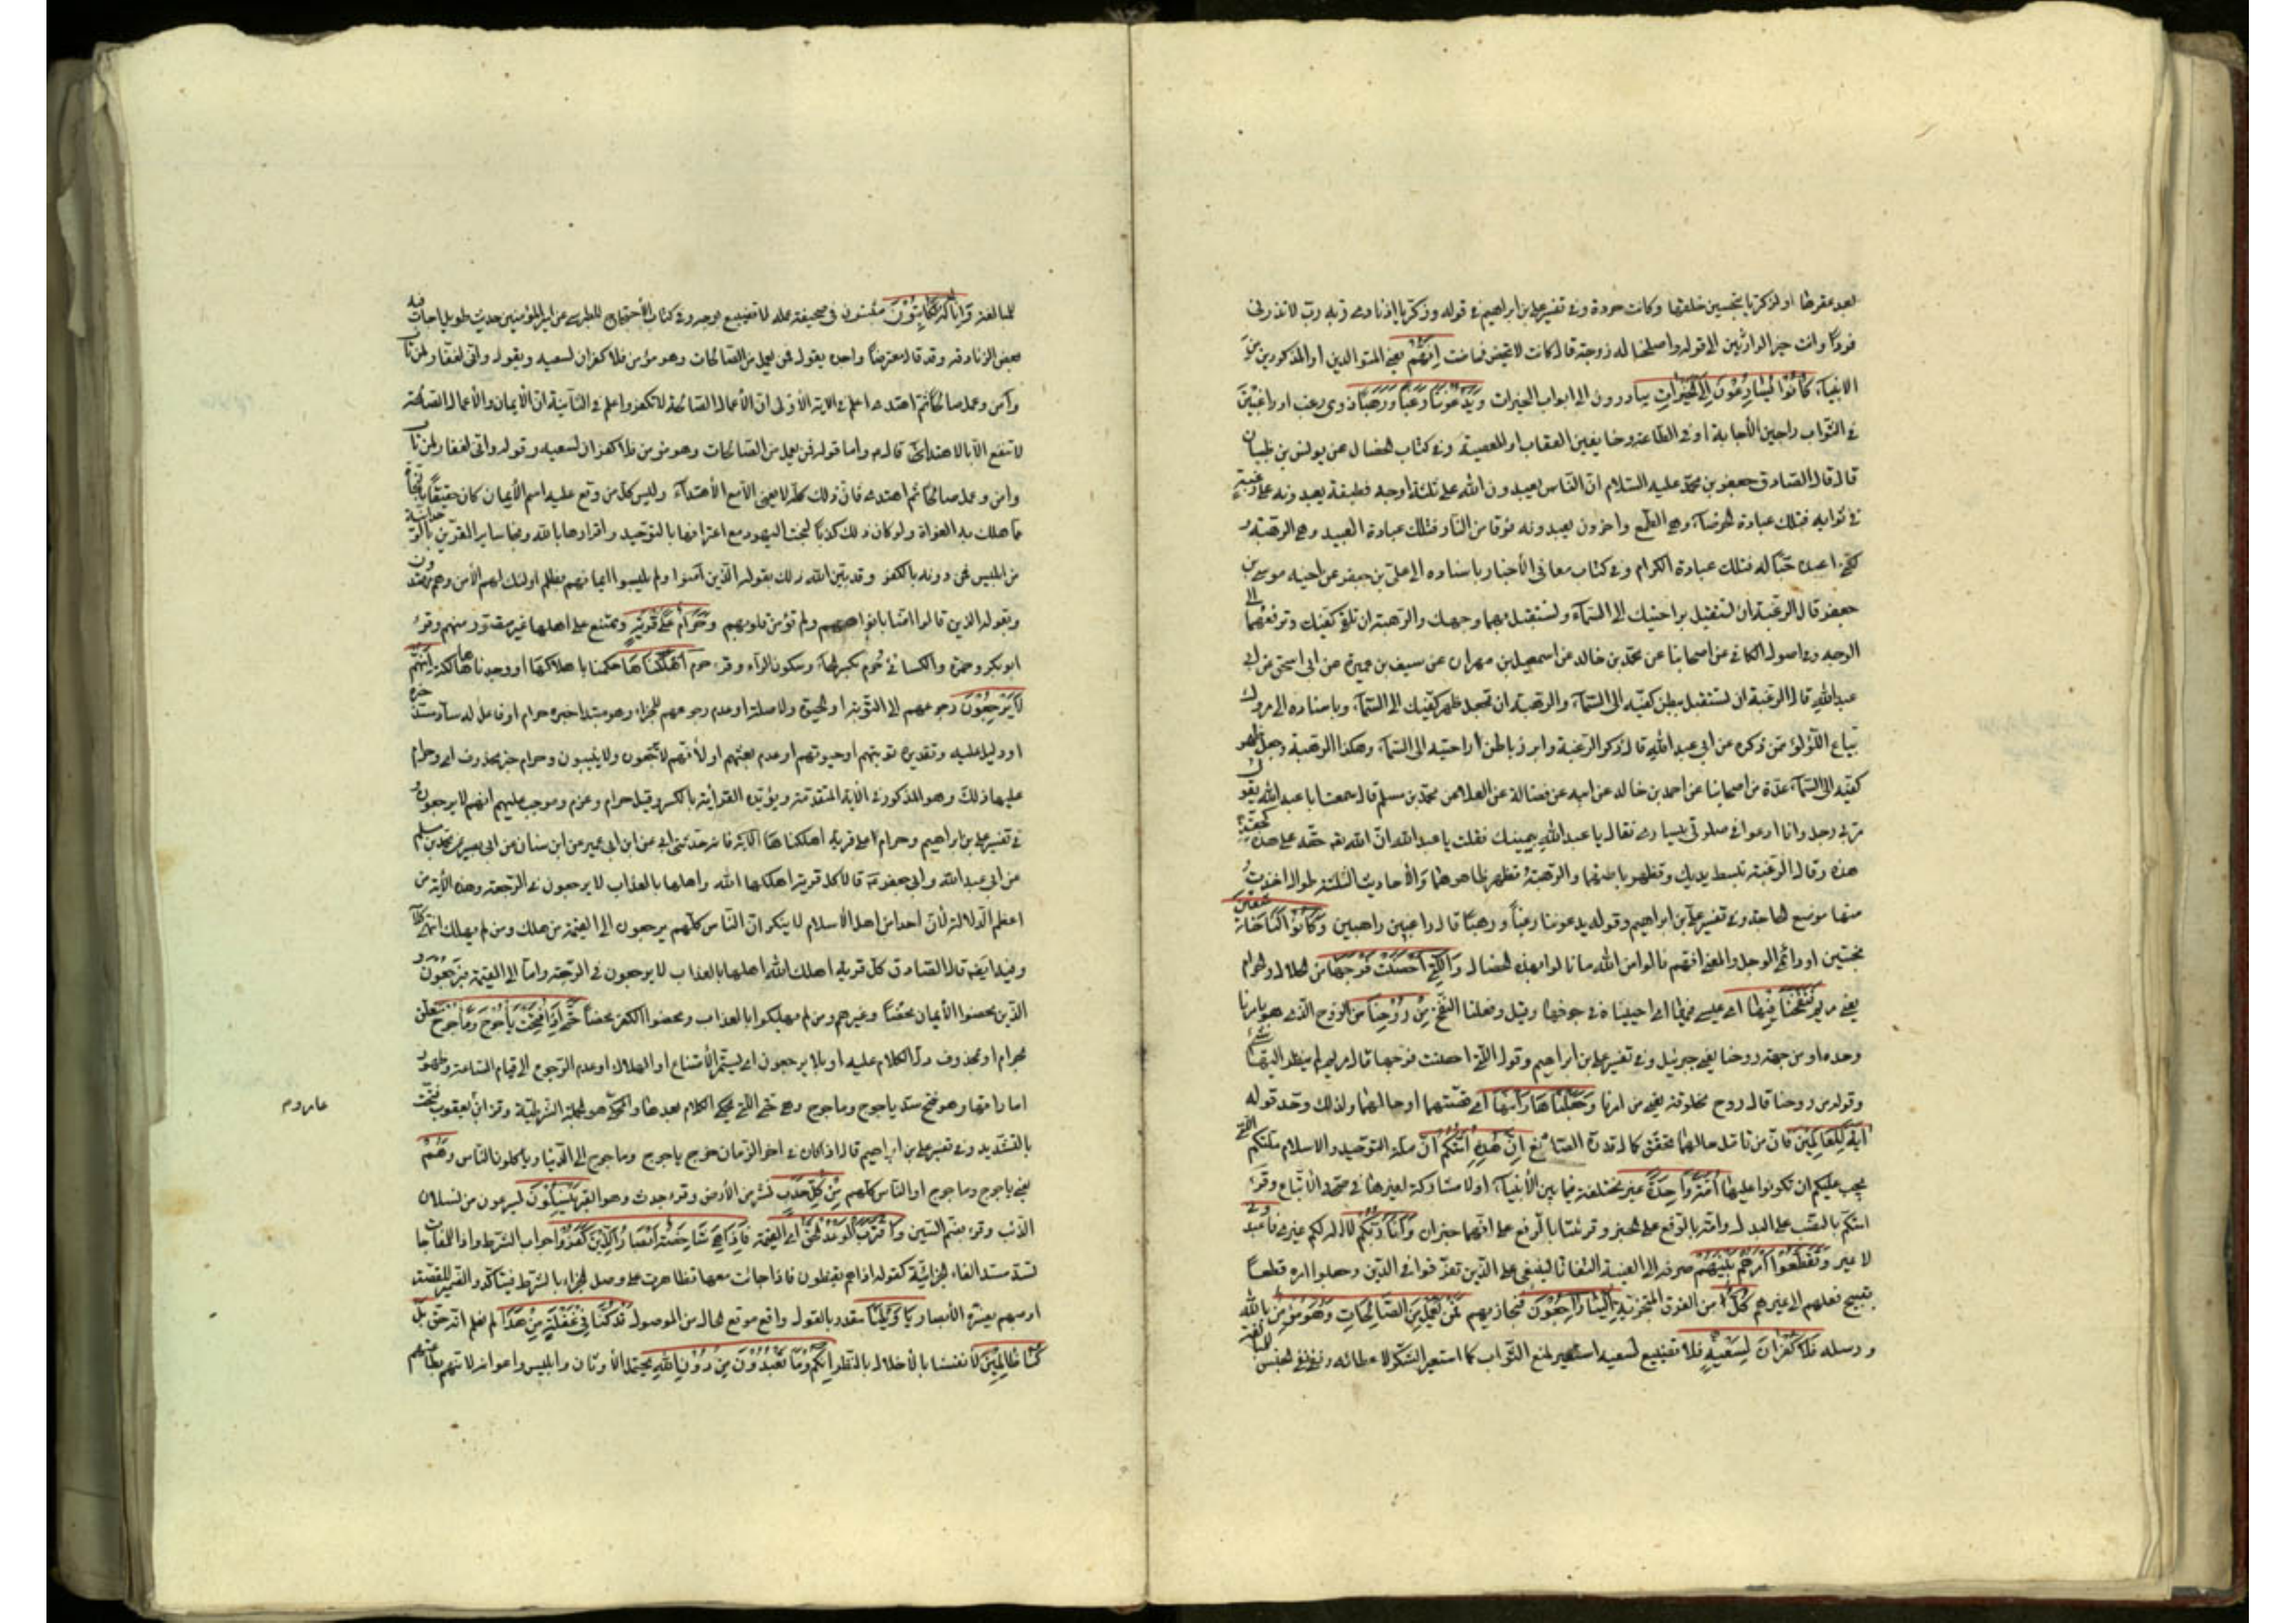 بعد عقرها او لزكريا بتحسين خلقها وكانت حردة وفي تفسير علي بن ابراهيم في قوله وزكريا اذ نادى ربه رب لا تذرني
فردا وانت خير الوارثين الى قوله واصلحنا له زوجه قال كانت لا تحيض فحاضت إِنَّهُمْ يعني المتوالدين او المذكورين من
الانبياء كَانُوا يُسَارِعُونَ فِي الْخَيْرَاتِ يبادرون الى ابواب الخيرات وَيَدْعُونَنَا رَغَبًا وَرَهَبًا ذوي رغب او راغبين
في الثواب راجين الأجابة او في الطاعة وخايفين العقاب او المعصية وفي كتاب الخصال عن يونس بن ظبيان
قال قال الصادق جعفر بن محمد عليه السلام ان الناس يعبدون الله على ثلثة اوجه فطبقة يعبدونه على رغبة
في ثوابه فتلك عبادة الحرصاء وهو الطمع واخرون يعبدونه فرقا من النار فتلك عبادة العبيد وهي الرهبة و
لكني اعبده حبا له فتلك عبادة الكرام وفي كتاب معاني الأخبار باسناده الى علي بن جعفر عن اخيه موسى بن
جعفر قال الرغبة ان تستقبل براحتيك الى السماء وتستقبل بهما وجهك والرهبة ان تلقي كفيك وترفعهما الى
الوجه وفي اصول الكافي عن اصحابنا عن محمد بن خالد عن اسمعيل بن مهران عن سيف بن عميرة عن ابي اسحق عن ابي
عبد الله قال الرغبة ان تستقبل ببطن كفيك الى السماء والرهبة ان تجعل ظهر كفيك الى السماء وباسناده الى مروك
بياع اللؤلؤ عمن ذكره عن ابي عبد الله قال ذكر الرغبة وابرز باطن راحتيه الى السماء وهكذا الرهبة وجعل ظهر
كفيه الى السماء عدة من اصحابنا عن احمد بن خالد عن ابيه عن فضالة عن العلا عن محمد بن مسلم قال سمعت ابا عبد الله يقول
مر بي رجل وانا ادعو في صلوتي بيساري فقال يا عبد الله بيمينك فقلت يا عبد الله ان الله تعه حقه على هذه كحقه على
هذه وقال الرغبة تبسط يديك وتظهر باطنهما والرهبة تظهر ظاهرهما والأحاديث الثلثة طوال اخذت
منها موضع الحاجة وفي تفسير علي بن ابراهيم وقوله يدعوننا رغبا ورهبا قال راغبين راهبين وَكَانُوا لَنَا خَاشِعِينَ
مخبتين او دائمي الوجل والمعنى انهم نالوا من الله ما نالوا بهذه الخصال وَالَّتِي أَحْصَنَتْ فَرْجَهَا من الحلال والحرام
يعني مريم فَنَفَخْنَا فِيهَا اي عيسى فيها اي احييناه في جوفها وقيل وفعلنا النفخ مِنْ رُوحِنَا من الروح الذي هو بامرنا
وحده او من جهة روحنا يعني جبرئيل وفي تفسير علي بن ابراهيم وقوله التي احصنت فرجها قال مريم لم ينظر اليها شيء
وقوله من روحنا قال روح مخلوقة يعني من امرنا وَجَعَلْنَاهَا وَابْنَهَا اي قصتهما او حالهما ولذلك وحد قوله
آيَةً لِلْعَالَمِينَ فان من تأمل حالهما تحقق كمال قدرة الصانع إِنَّ هَٰذِهِ أُمَّتُكُمْ ان ملة التوحيد والاسلام ملتكم التي
يجب عليكم ان تكونوا عليها أُمَّةً وَاحِدَةً غير مختلفة فيما بين الأنبياء اولا مشاركة لغيرها في صحة الأتباع وقرء
امتكم بالنصب على البدل وامة بالرفع على الخبر وقرئتا بالرفع على انهما خبران وَأَنَا رَبُّكُمْ لا اله لكم غيري فَاعْبُدُونِ
لا غير وَتَقَطَّعُوا أَمْرَهُمْ بَيْنَهُمْ صرفه الى الغيبة التفاتا لينعى على الذين تفرقوا في الدين وجعلوا امره قطعا
تقبيح فعلهم الى غيرهم كُلٌّ من الفرق المتحزبة إِلَيْنَا رَاجِعُونَ فنجازيهم فَمَنْ يَعْمَلْ مِنَ الصَّالِحَاتِ وَهُوَ مُؤْمِنٌ بالله
و رسله فَلَا كُفْرَانَ لِسَعْيِهِ فلا تضييع لسعيه استعير لمنع الثواب كما استعير الشكر لاعطائه ونفى نفي الجنس للمبالغة
للمبالغة وَإِنَّا لَهُ كَاتِبُونَ مثبتون في صحيفة عمله لا تضييع بوجه وفي كتاب الأحتجاج للطبرسي عن امير المؤمنين حديث طويل اجاب فيه
بعض الزنادقة وقد قال معترضا واجده يقول فمن يعمل من الصالحات وهو مؤمن فلا كفران لسعيه ويقول واني لغفار لمن تاب
وآمن وعمل صالحا ثم اهتدى اعلم في الآية الأولى ان الأعمال الصالحة لا تكفر واعلم في الثانية ان الأيمان والأعمال الصالحة
لا تنفع الا بالاهتداء قال واما قوله فمن يعمل من الصالحات وهو مؤمن فلا كفران لسعيه وقوله واني لغفار لمن تاب
وامن وعمل صالحا ثم اهتدى فان ذلك كله لا يغني الا مع الأهتداء وليس كل من وقع عليه اسم الأيمان كان حقيقا بالنجاة
مما هلك به الغواة ولو كان ذلك كذلك لنجت اليهود مع اعترافها بالتوحيد واقرارها بالله ونجا ساير المقرين بالوحدانية
من ابليس فمن دونه بالكفر وقد بين الله ذلك بقوله الذين آمنوا ولم يلبسوا ايمانهم بظلم اولئك لهم الأمن وهم مهتدون
وبقوله الذين قالوا امنا بافواههم ولم تؤمن قلوبهم وَحَرَامٌ عَلَىٰ قَرْيَةٍ وممتنع على اهلها غير متصور منهم وقرء
ابو بكر وحمزة والكسائي حرم بكسر الحاء وسكون الراء وقرء حرم أَهْلَكْنَاهَا حكمنا باهلاكها او وجدناها هالكة أَنَّهُمْ
لَا يَرْجِعُونَ رجوعهم الى التوبة او الحيوة ولا صلة او عدم رجوعهم للجزاء وهو مبتدا خبره حرام او فاعل له ساد مسد خبره
او دليل عليه وتقديره توبتهم او حيوتهم او عدم بعثهم او لأنهم لا يرجعون ولا ينيبون وحرام خبر محذوف اي وحرام
عليها ذلك وهو المذكور في الآية المتقدمة ويؤيده القرائة بالكسر وقيل حرام وعزم وموجب عليهم انهم لا يرجعون و
في تفسير علي بن ابراهيم وحرام على قرية اهلكناها الآية فانه حدثني ابي عن ابن ابي عمير عن ابن سنان عن ابي بصير عن محمد بن مسلم
عن ابي عبد الله وابي جعفر ع قالا كل قرية اهلكها الله واهلها بالعذاب لا يرجعون في الرجعة وهذه الآية من
اعظم الدلالة لأن احدا من اهل الأسلام لا ينكر ان الناس كلهم يرجعون الى القيمة من هلك ومن لم يهلك
وفيه ايضه قال الصادق كل قرية اهلك الله اهلها بالعذاب لا يرجعون في الرجعة واما الى القيمة فيرجعون و
الذين محضوا الأيمان محضا وغيرهم ومن لم يهلكوا بالعذاب ومحضوا الكفر محضا حَتَّىٰ إِذَا فُتِحَتْ يَأْجُوجُ وَمَأْجُوجُ متعلق
بحرام او محذوف دل الكلام عليه او بلا يرجعون اي يستمر الأمتناع او الهلاك او عدم الرجوع الى قيام الساعة وظهور
اماراتها وهو فتح سد ياجوج وماجوج وهي حتى التي يحكى الكلام بعدها والمحكي هو الجملة الشرطية وقرء ابن يعقوب فتحت
عامر وم
بالتشديد وفي تفسير علي بن ابراهيم قال اذا كان في اخر الزمان خرج ياجوج وماجوج الى الدنيا وياكلون الناس وَهُمْ
يعني ياجوج وماجوج او الناس كلهم مِنْ كُلِّ حَدَبٍ نشز من الأرض وقرء جدث وهو القبر يَنْسِلُونَ يسرعون من نسلان
الذئب وقرء بضم السين وَاقْتَرَبَ الْوَعْدُ الْحَقُّ اي القيمة فَإِذَا هِيَ شَاخِصَةٌ أَبْصَارُ الَّذِينَ كَفَرُوا جواب الشرط واذا للمفاجات
تسد مسد الفاء الجزائية كقوله اذا هم يقنطون فاذا جائت معها تظاهرت على وصل الجزاء بالشرط فيتأكد والضمير للقصة
او مبهم يفسره الأبصار يَا وَيْلَنَا مقدر بالقول واقع موقع الحال من الموصول قَدْ كُنَّا فِي غَفْلَةٍ مِنْ هَٰذَا لم نعلم انه حق بَلْ
كُنَّا ظَالِمِينَ لأنفسنا بالأخلال بالنظر إِنَّكُمْ وَمَا تَعْبُدُونَ مِنْ دُونِ اللَّهِ يحتمل الأوثان وابليس واعوانه لانهم بطاعتهم